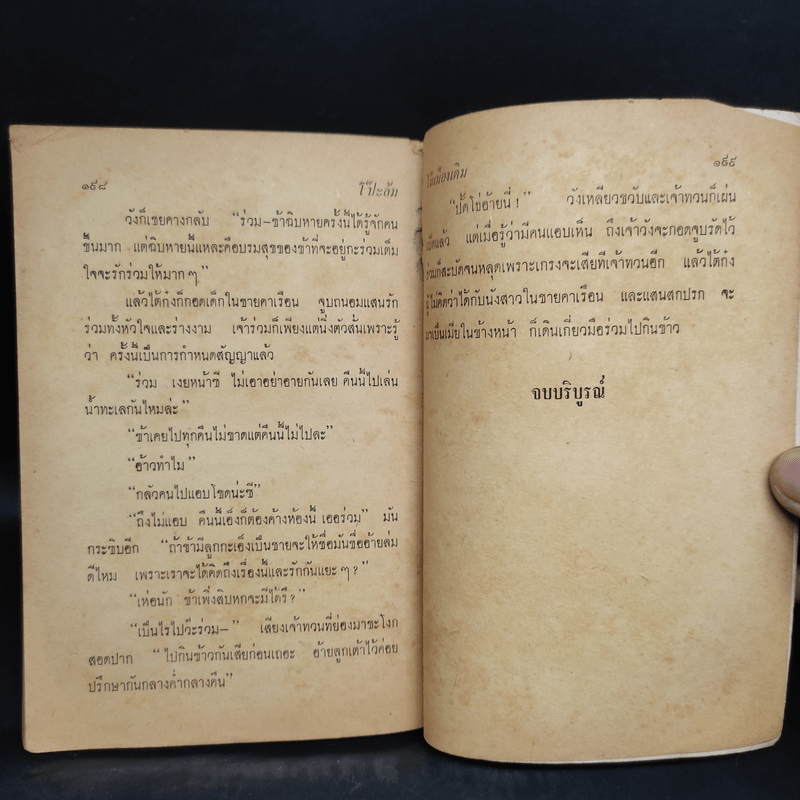 ๑๙๘
โป๊ะล้ม
วังก็เชยคางกลับ “ร่วม–ข้าฉิบหายครั้งนี้ได้รู้จักคน
ขึ้นมาก แต่ฉิบหายนี้แหละคือบรมสุขของข้าที่จะอยู่กะร่วมเต็ม
ใจจะรักร่วมให้มากๆ”
แล้วไต้ก๋งก็กอดเด็กในชายคาเรือน จูบถนอมแสนรัก
ร่วมทั้งหัวใจและร่างงาม เจ้าร่วมก็เพียงแต่นิ่งตัวสั่นเพราะรู้
ว่า ครั้งนี้เป็นการกำหนดสัญญาแล้ว
“ร่วม เงยหน้าซี ไม่เอาอย่าอายกันเลย คืนนี้ไปเล่น
น้ำทะเลกันไหมล่ะ”
“ข้าเคยไปทุกคืนไม่ขาดแต่คืนนี้ไม่ไปละ”
“อ้าวทำไม”
“กลัวคนไปแอบโขดน่ะซี”
“ถึงไม่แอบ คืนนี้เอ็งก็ต้องค้างห้องนี้ เออร่วม” มัน
กระซิบอีก “ถ้าข้ามีลูกกะเอ็งเป็นชายจะให้ชื่อมันชื่ออ้ายล่ม
ดีไหม เพราะเราจะได้คิดถึงเรื่องนี้และรักกันแยะๆ?”
“เห่อนัก ข้าเพิ่งสิบหกจะมีได้รึ?”
“เป็นไรไปวะร่วม–” เสียงเจ้าทวนที่ย่องมาชะโงก
สอดปาก “ไปกินข้าวกันเสียก่อนเถอะ อ้ายลูกเต้าไว้ค่อย
ปรึกษากันกลางค่ำกลางคืน”
ไม้เมืองเดิม
๑๙๙
“ปั้ดโธ่อ้ายนี่!” วังเหลียวขวับและเจ้าทวนก็เผ่น
แล้ว แต่เมื่อรู้ว่ามีคนแอบเห็น ถึงเจ้าวังจะกอดจูบรัดไว้
ร่วมก็สะบัดจนหลุดเพราะเกรงจะเสียทีเจ้าทวนอีก แล้วไต้ก๋ง
ผู้ไม่คิดว่าได้กับนังสาวในชายคาเรือน และแสนสกปรก จะ
มาเป็นเมียในข้างหน้า ก็เดินเกี่ยวมือร่วมไปกินข้าว
จบบริบูรณ์